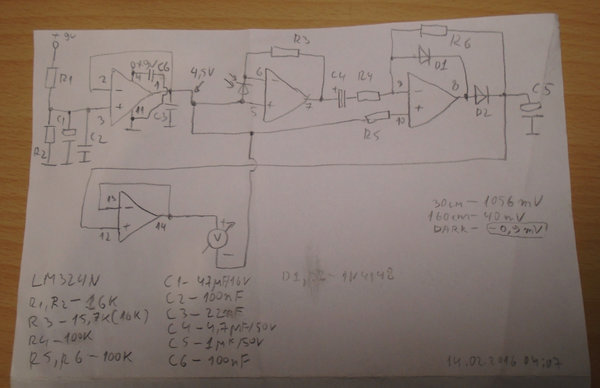 + 9V
R1
R2
C1
C2
2
3
4
1
11
C6
C3
4,5V
R3
6
5
7
C4
R4
R5
9
10
8
R6
D1
D2
C5
13
12
14
V
30cm - 1096 mV
160cm - 40 mV
DARK - -0,9 mV
LM324N
R1, R2 - 16K
R3 - 15,7K (16K)
R4 - 100K
R5, R6 - 100K
C1 - 47µF/16V
C2 - 100nF
C3 - 22nF
C4 - 4,7µF/50V
C5 - 1µF/50V
C6 - 100nF
D1, D2 - 1N4148
14.02.2016 04:07